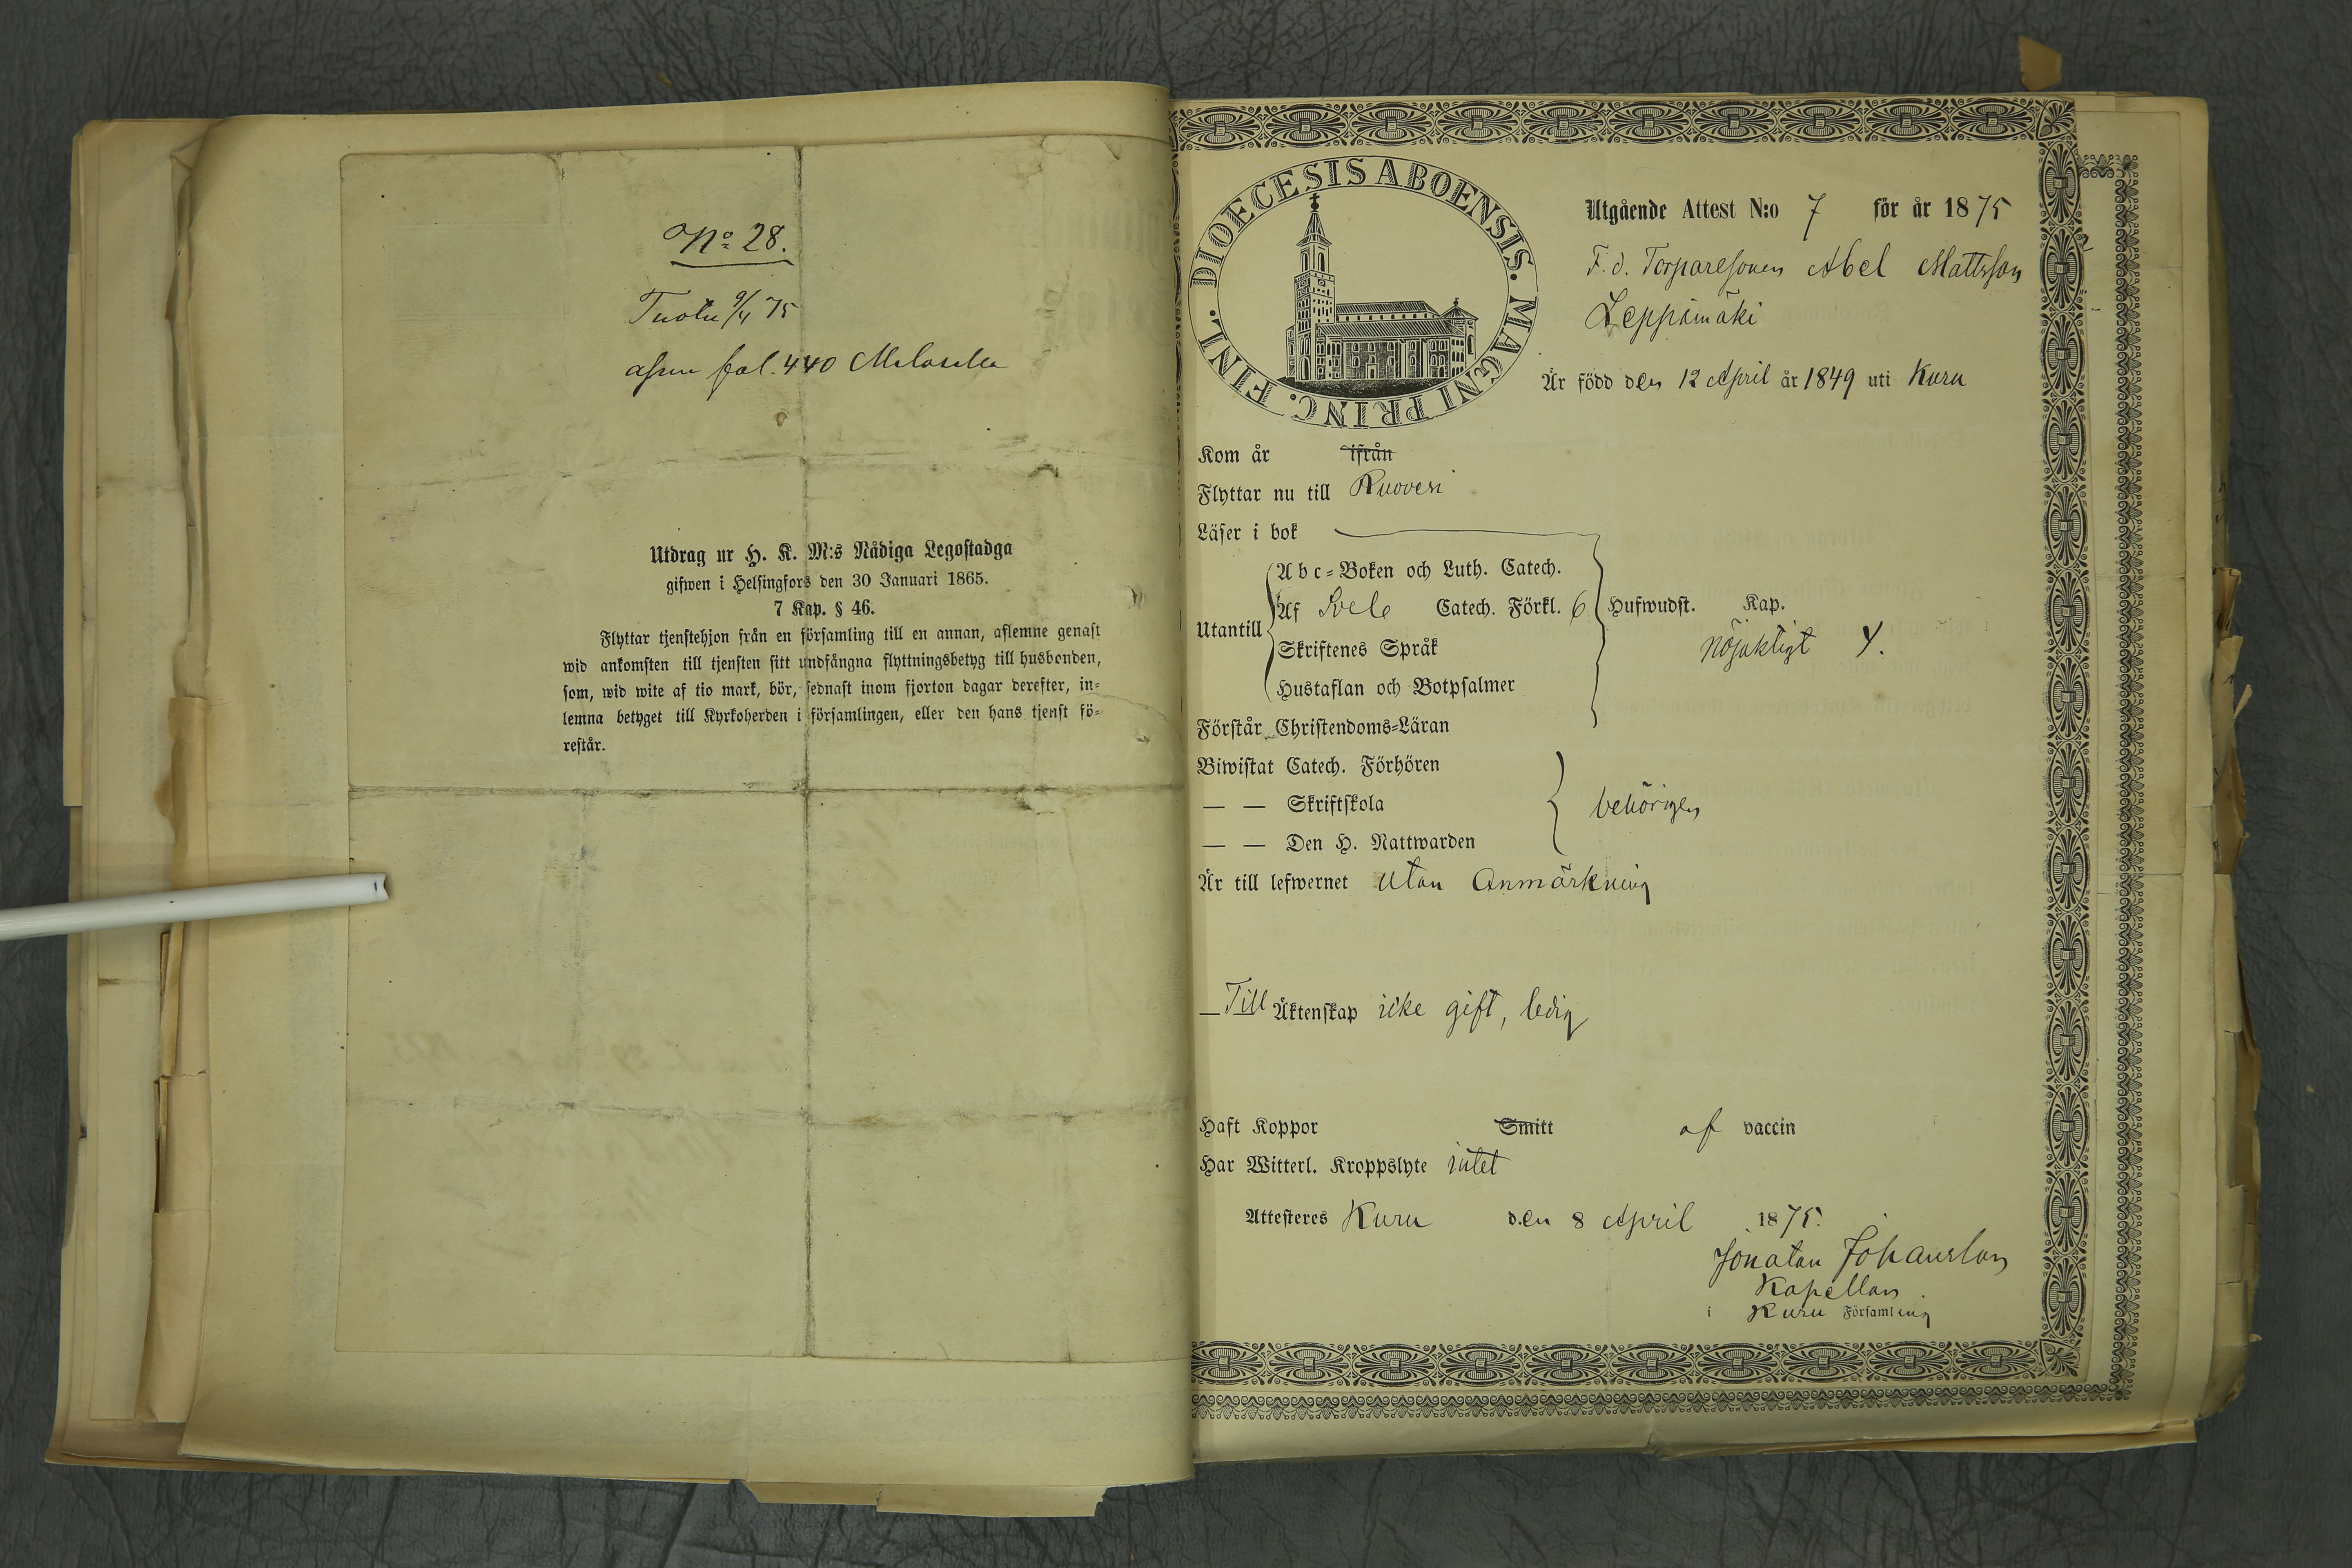 No 28.
Tuotu 9/4 75
asuu fol. 440
Utdrag ur H. K. M:s Nådiga Legostadga
gifwen i Helsingfors den 30 Januari 1865.
7 Kap. § 46.
Flyttar tjenstehjon från en församling till en annan, aflemne genast
wid ankomsten till tjensten sitt undfångna flyttningsbetyg till husbonden,
som, wid wite af tio mark, bör, sednast inom fjorton dagar derefter, in-
lemna betyget till Kyrkoherden i församlingen, eller den hans tjenst fö-
restår.
DIOECESIS ABOENSIS. MAGNI PRINC. FINL.
Utgående Attest N:o 7 för år 1875
F. d. Torparesonen Abel Mattsson
Leppämäki
Är född den 12 April år 1849 uti Kuru
Kom år ifrån
Flyttar nu till Ruovesi
Läser i bok
Utantill
Abc-Boken och Luth. Catech.
Af Svebe Catech. Förkl. 6 Hufwudst. Kap.
Skriftenes Språk nöjaktigt
Hustaflan och Botpsalmer
Förstår Christendoms-Läran
Biwistat Catech. Förhören
— — Skriftskola behörigen
— — Den H. Nattwarden
Är till lefwernet utan Anmärkning
Till Äktenskap icke gift, ledig
Haft Koppor Smitt af vaccin
Har Witterl. Kroppslyte intet
Attesteres Kuru den 8 April 1875.
Jonatan Johansson
Kapellan
i Kuru Församling